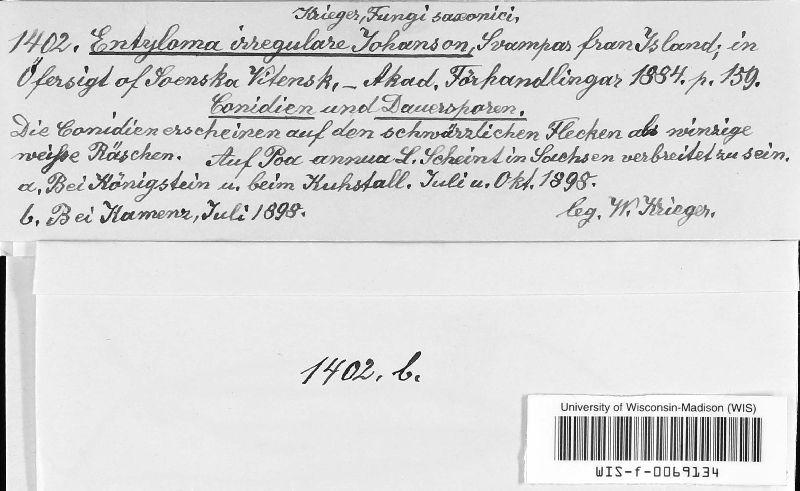 Krieger, Fungi saxonici.
1402. Entyloma irregulare Johanson, Svampar fran Island; in
Öfersigt of Svenska Vitensk. – Akad. Förhandlingar 1884. p. 159.
Conidien und Dauersporen.
Die Conidien erscheinen auf den schwärzlichen Flecken als winzige
weiße Räschen. Auf Poa annua L. Scheint in Sachsen verbreitet zu sein.
a. Bei Königstein u. beim Kuhstall. Juli u. Okt. 1898.
b. Bei Kamenz, Juli 1898. leg. W. Krieger.
1402. b.
University of Wisconsin-Madison (WIS)
WIS-f-0069134